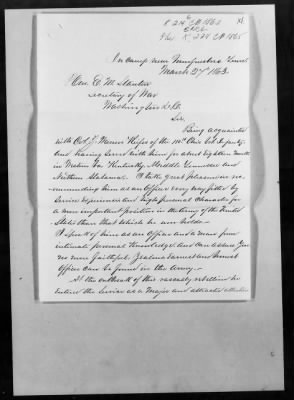 In camp near Murfreesboro Tenn.
March 27th 1863.
Hon. E. M. Stanton
Secretary of War
Washington D.C.
Sir.
Being acquainted
with Col. J. Warren Keifer of the 110th Ohio Vol. Infantry
and having served with him for about eighteen months
in Western Va. Kentucky, Middle Tennessee and
Northern Alabama. I take great pleasure in re-
commending him as an officer very way fitted by
service experience and high personal character for
a more important position in the Army of the United
States than that which he now holds.
I speak of him as an officer and a man from
intimate personal knowledge and can assure you
no more faithful, zealous earnest and honest
officer can be found in the Army.
At the outbreak of this rascally rebellion he
entered the service as a Major and attracted attention